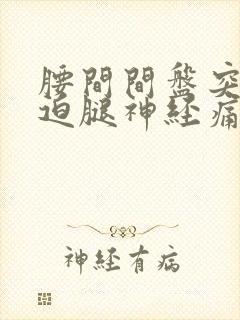 腰間間盤突
迫腿神経痛
神經有病